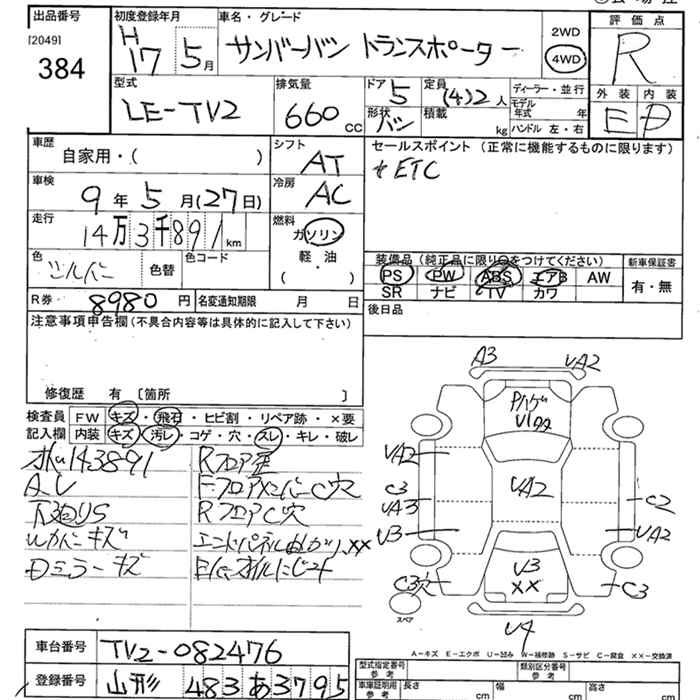 出品番号
[2049]
384
初度登録年月
H
17 5月
車名・グレード
サンバーバン トランスポーター
2WD
4WD
評価点
R
外装 内装
E D
型式
LE-TV2
排気量
660 CC
ドア 5
形状 バン
定員 (4)2人
積載 kg
ディーラー・並行
モデル年式 年
ハンドル 左・右
車歴
自家用・( )
シフト
AT
セールスポイント (正常に機能するものに限ります)
ETC
車検
9年 5月(27日)
冷房
AC
走行
14万3千891km
燃料
ガソリン
軽・油
( )
色
シルバー
色替
色コード
装備品 (純正品に限り○をつけてください)
PS PW ABS エアB AW
SR ナビ TV カワ
新車保証書
有・無
R券 8980円
名変通知期限 月 日
後日品
注意事項申告欄 (不具合内容等は具体的に記入して下さい)
修復歴 有 [箇所 ]
検査員
記入欄
FW キズ・飛石・ヒビ割・リペア跡・×要
内装 キズ・汚レ・コゲ・穴・スレ・キレ・破レ
143891
Rフロア
FフロアメンバーC穴
RフロアC穴
キズ
エンドパネル曲がり、××
Dミラーキズ
オイルにじみ
A3
UA2
UA2
UA2
C3
UA3
U3
C2
UA2
U3
××
C3穴
C3
U4
スペア
A-キズ E-エクボ U-凹み W-補修跡 S-サビ C-腐食 ××-交換済
車台番号
TV2-082476
登録番号
山形 483 あ3795
型式指定番号
参考
類別区分番号
参考
車庫証明用
参考
長さ cm
幅 cm
高さ cm